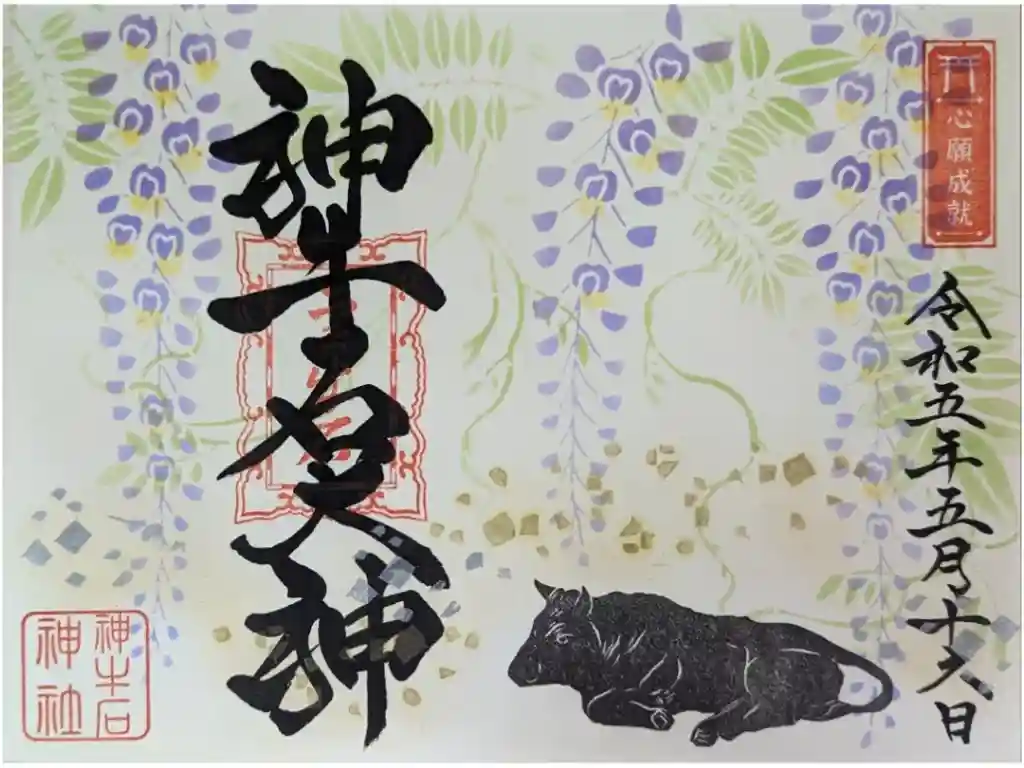 心願成就
令和五年五月十六日
神牛石大神
神牛石
神社